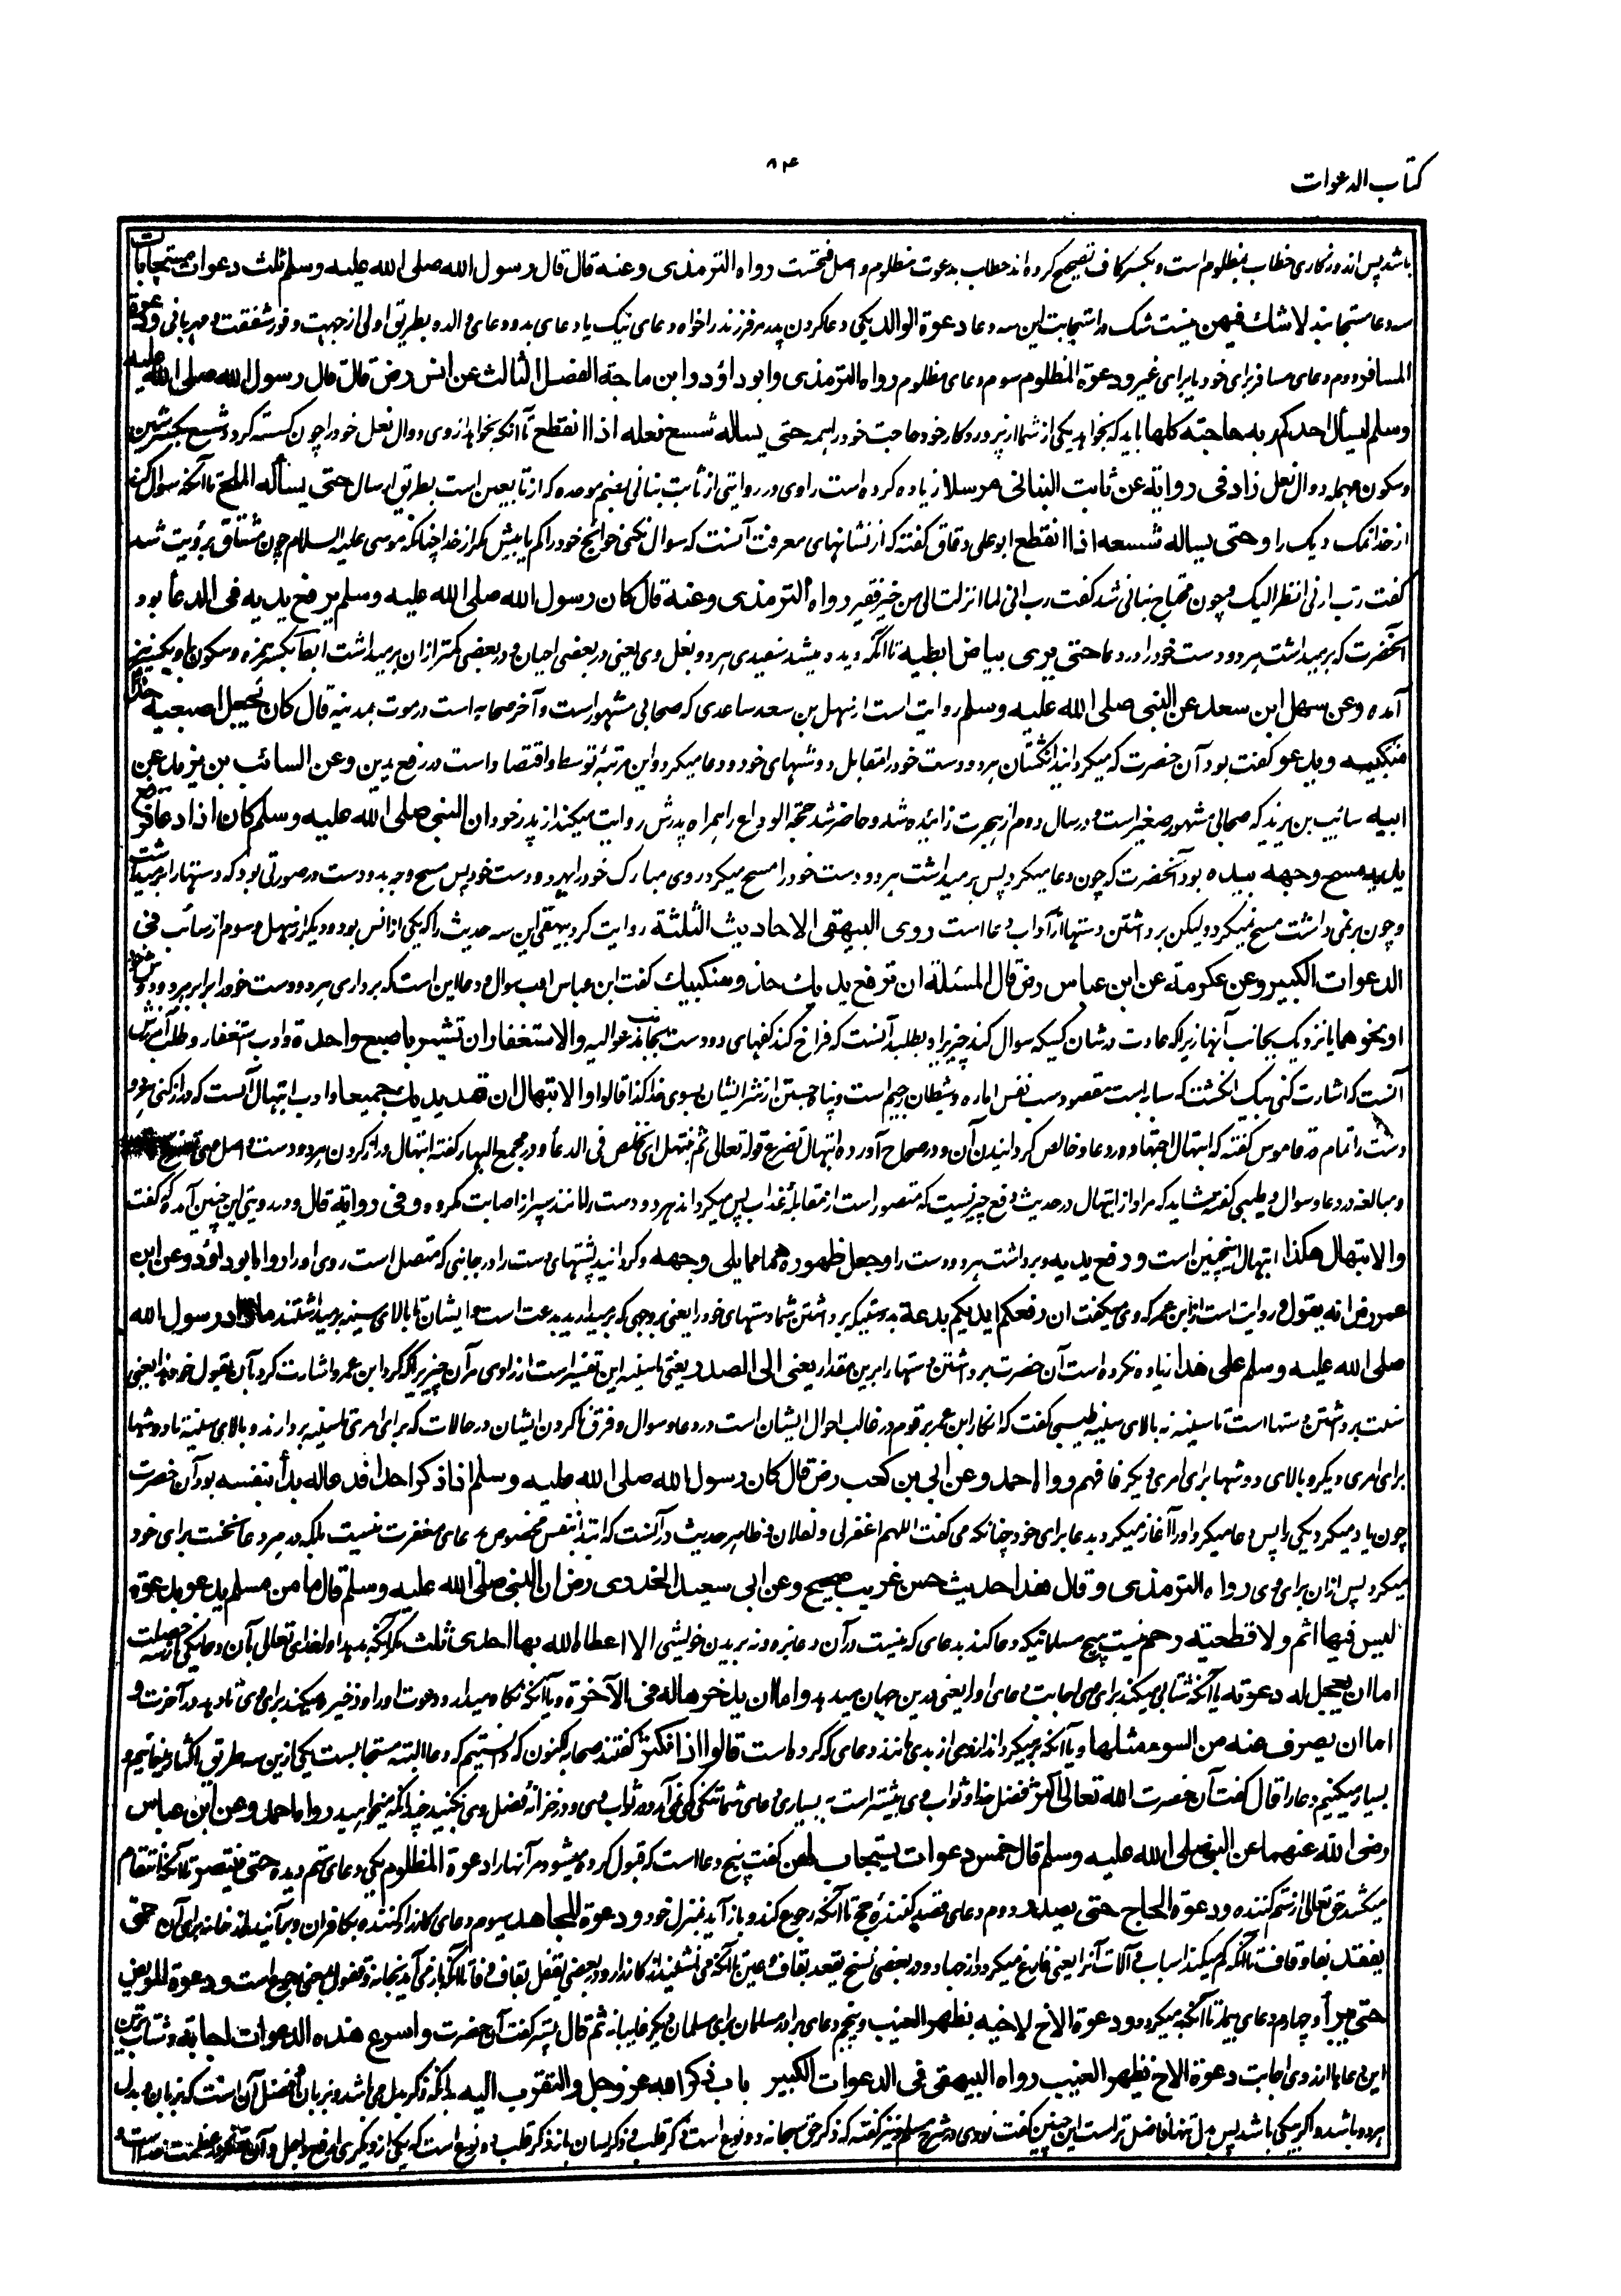 کتاب الدعوات
۸۴
باشد پس اندوزکاری خطاب بمظلوم است و بکسر کاف تصحیح کرده اند خطاب بدعوت مظلوم و اصل فتحست رواه الترمذی وعنه قال قال رسول الله صلی الله علیه وسلم ثلث دعوات مستجابات
سه دعا مستجابند لاشك فیهن نیست شک در استجابت این سه دعا دعوة الوالد یکی دعا کردن پدر مر فرزند را خواه دعای نیک یا دعای بد و دعای والده بطریق اولی از جهت وفور شفقت و مهربانی ودعوة
المسافر دوم دعای مسافر برای خود یا برای غیر ودعوة المظلوم سوم دعای مظلوم رواه الترمذی وابوداؤد وابن ماجة الفصل الثالث عن انس رض قال قال رسول الله صلی الله علیه
وسلم لیسأل احدکم ربه حاجته کلها باید که بخواهد یکی از شما از پروردگار خود حاجت خود را همه حتی یساله شسع نعله اذا انقطع تا آنکه بخواهد از وی دوال نعل خود را چون گسسته گردد شسع بکسر شین
وسکون مهمله دوال نعل زاد فی روایة عن ثابت البنانی مرسلا زیاده کرده است راوی در روایتی از ثابت بنانی بضم موحده که از تابعین است بطریق ارسال حتی یسأله الملح تا آنکه سوال کند
از خدا نمک دیگ را وحتی یساله شسعه اذا انقطع ابو علی دقاق گفته که از نشانهای معرفت آنست که سوال نکنی حوائج خود را کم یا بیش مگر از خدا چنانکه موسی علیه السلام چون مشتاق برؤیت شد
گفت رب ارنی انظر الیک و چون محتاج بنانی شد گفت رب انی لما انزلت الی من خیر فقیر رواه الترمذی وعنه قال کان رسول الله صلی الله علیه وسلم یرفع یدیه فی الدعاء بود
آنحضرت که برمیداشت هر دو دست خود را در دعا حتی یری بیاض ابطیه تا آنکه دیده میشد سفیدی هر دو بغل وی یعنی در بعضی احیان و در بعضی کمتر ازان برمیداشت ابط بکسر همزه وسکون با و بکسر نیز
آمده وعن سهل ابن سعد عن النبی صلی الله علیه وسلم روایت است از سهل بن سعد ساعدی که صحابی مشهور است و آخر صحابه است در موت بمدینه قال کان یجعل اصبعیه حذاء
منکبیه ویدعو گفت بود آن حضرت که میگردانید انگشتان هر دو دست خود را مقابل دوشهای خود و دعا میکرد و این مرتبۀ توسط و اقتصاد است در رفع یدین وعن السائب بن یزید عن
ابیه سائب بن یزید که صحابی مشهور صغیر است در سال دوم از هجرت زائیده شد و حاضر شد حجة الوداع را همراه پدرش روایت میکند از پدر خود ان النبی صلی الله علیه وسلم کان اذا دعا فرفع
یدیه مسح وجهه بیدیه بود آنحضرت که چون دعا میکرد پس برمیداشت هر دو دست خود را مسح میکرد روی مبارک خود را بهر دو دست خود پس مسح وجه بدو دست در صورتی بود که دستها را برمیداشت
و چون برنمی داشت مسح نمیکرد و لیکن برداشتن دستها از آداب دعا است روی البیهقی الاحادیث الثلثة روایت کرد بیهقی این سه حدیث را که یکی از انس بود و دیگر از سهل و سوم از سائب فی
الدعوات الکبیر وعن عکرمة عن ابن عباس رض قال المسئلة ان ترفع یدیك حذو منکبیك گفت ابن عباس ادب سوال و دعا این است که برداری هر دو دست خود را برابر هر دو دوش خود
او نحوهما یا نزدیک بجانب آنها زیرا که عادت در شان کسیکه سوال کند چیزی را و بطلبد آنست که فراخ کند کفهای دو دست والاستغفار ان تشیر باصبع واحدة و ادب استغفار و طلب آمرزش
آنست که اشارت کنی بیک انگشت که سبابه است مقصود سب نفس اماره و شیطان رجیم است و پناه جستن از شر ایشان بسوی خدا کذا قالوا والابتهال ان تمد یدیك جمیعا و ادب ابتهال آنست که دراز کنی هر دو
دست را تمام در قاموس گفته که ابتهال اجتهاد در دعا و خالص گردانیدن آن و در صحاح آورده ابتهال تضرع قوله تعالی ثم نبتهل ای نخلص فی الدعاء و در مجمع البحار گفته ابتهال دراز کردن هر دو دست و اصل وی تضرع
و مبالغه در دعا و سوال و طیبی گفته شاید که مراد از ابتهال در حدیث دفع چیزیست که متصور است از مقابلۀ عذاب پس میگرداند هر دو دست را مانند سپر از اصابت مکروه وفی روایة قال و در روایتی این چنین آمده که گفت
والابتهال هکذا ابتهال اینچنین است ورفع یدیه و برداشت هر دو دست را وجعل ظهورهما مما یلی وجهه و گردانید پشتهای دست را در جانبی که متصل است روی او را رواه ابوداؤد وعن ابن
عمر رض انه یقول و روایت است از ابن عمر که وی میگفت ان رفعکم ایدیکم بدعة بدرستیکه برداشتن شما دستهای خود را یعنی بوجهی که برمیدارید بدعت است و ایشان تا بالای سینه برمیداشتند ما زاد رسول الله
صلی الله علیه وسلم علی هذا زیاده نکرده است آن حضرت برداشتن دستها را برین مقدار یعنی الی الصدر یعنی تا سینه این تفسیر است از راوی مر آن چیزیرا که ذکر کرد ابن عمر و اشارت کرد بآن بقول خود هذا یعنی
سنت برداشتن دستها است تا سینه نه بالای سینه طیبی گفت که انکار ابن عمر بر قوم در غالب احوال ایشان است در دعا و سوال و فرق ناکردن ایشان در حالات که برای امری تا سینه بردارند و بالای سینه تا دوشها
برای امری دیگر و بالای دوشها برای امری دیگر فافهم رواه احمد وعن ابی بن کعب رض قال کان رسول الله صلی الله علیه وسلم اذا ذکر احدا فدعا له بدأ بنفسه بود آن حضرت
چون یاد میکرد یکی را پس دعا میکرد او را آغاز میکرد بدعا برای خود چنانکه می گفت اللهم اغفر لی ولفلان و ظاهر حدیث در آنست که ابتدا بنفس مخصوص بدعای مغفرت نیست بلکه در هر دعا نخست برای خود
میکرد پس ازان برای وی رواه الترمذی وقال هذا حدیث حسن غریب صحیح وعن ابی سعید الخدری رض ان النبی صلی الله علیه وسلم قال ما من مسلم یدعو بدعوة
لیس فیها اثم ولا قطیعة رحم نیست هیچ مسلمانیکه دعا کند بدعای که نیست در آن دعا بزه و نه بریدن خویشی الا اعطاه الله بها احدی ثلث مگر آنکه بدهد او را خدای تعالی بآن دعا یکی از سه خصلت
اما ان یعجل له دعوته یا آنکه شتابی میکند برای وی اجابت دعای او را یعنی درین جهان میدهد واما ان یدخرها له فی الآخرة و یا آنکه نگاه میدارد دعوت او را و ذخیره میکند برای وی تا بدهد در آخرت و
اما ان یصرف عنه من السوء مثلها و یا آنکه برمیگرداند از وی از بدی مانند دعای که کرده است قالوا اذا نکثر گفتند صحابه اکنون که دانستیم که دعا البته مستجابست بیکی ازین سه طریق اکثار میکنیم و
بسیار میکنیم دعا را قال گفت آن حضرت الله تعالی اکثر فضل خدا و ثواب وی بیشتر است رواه احمد وعن ابن عباس
رضی الله عنهما عن النبی صلی الله علیه وسلم قال خمس دعوات یستجاب لهن گفت پنج دعا است که قبول کرده میشود مر آنها را دعوة المظلوم یکی دعای ستم دیده حتی ینتصر تا آنکه انتقام
میکشد حق تعالی از ستم کننده ودعوة الحاج حتی یصدر دوم دعای قصد کنندۀ حج تا آنکه رجوع کند و باز آید بمنزل خود ودعوة المجاهد سیوم دعای کارزار کننده بکافران حتی
یفقد بفا و قاف ودعوة المریض
حتی یبرأ و چهارم دعای بیمار تا آنکه به میگردد ودعوة الاخ لاخیه بظهر الغیب و پنجم دعای برادر مسلمان برای مسلمان دیگر غایبانه ثم قال پستر گفت آن حضرت واسرع هذه الدعوات اجابة و شتاب ترین
این دعاها از روی اجابت دعوة الاخ بظهر الغیب رواه البیهقی فی الدعوات الکبیر باب ذکر الله عز وجل والتقرب الیه بدانکه ذکر بدل می باشد و بزبان و افضل آن است که بزبان و بدل
هر دو باشد و اگر بیکی باشد پس بدل تنها فاضل تر است این چنین گفت نووی در شرح مسلم و نیز گفته که ذکر حق سبحانه دو نوع است ذکر قلب و ذکر لسان باز ذکر قلب دو نوع است که یکی از دیگری